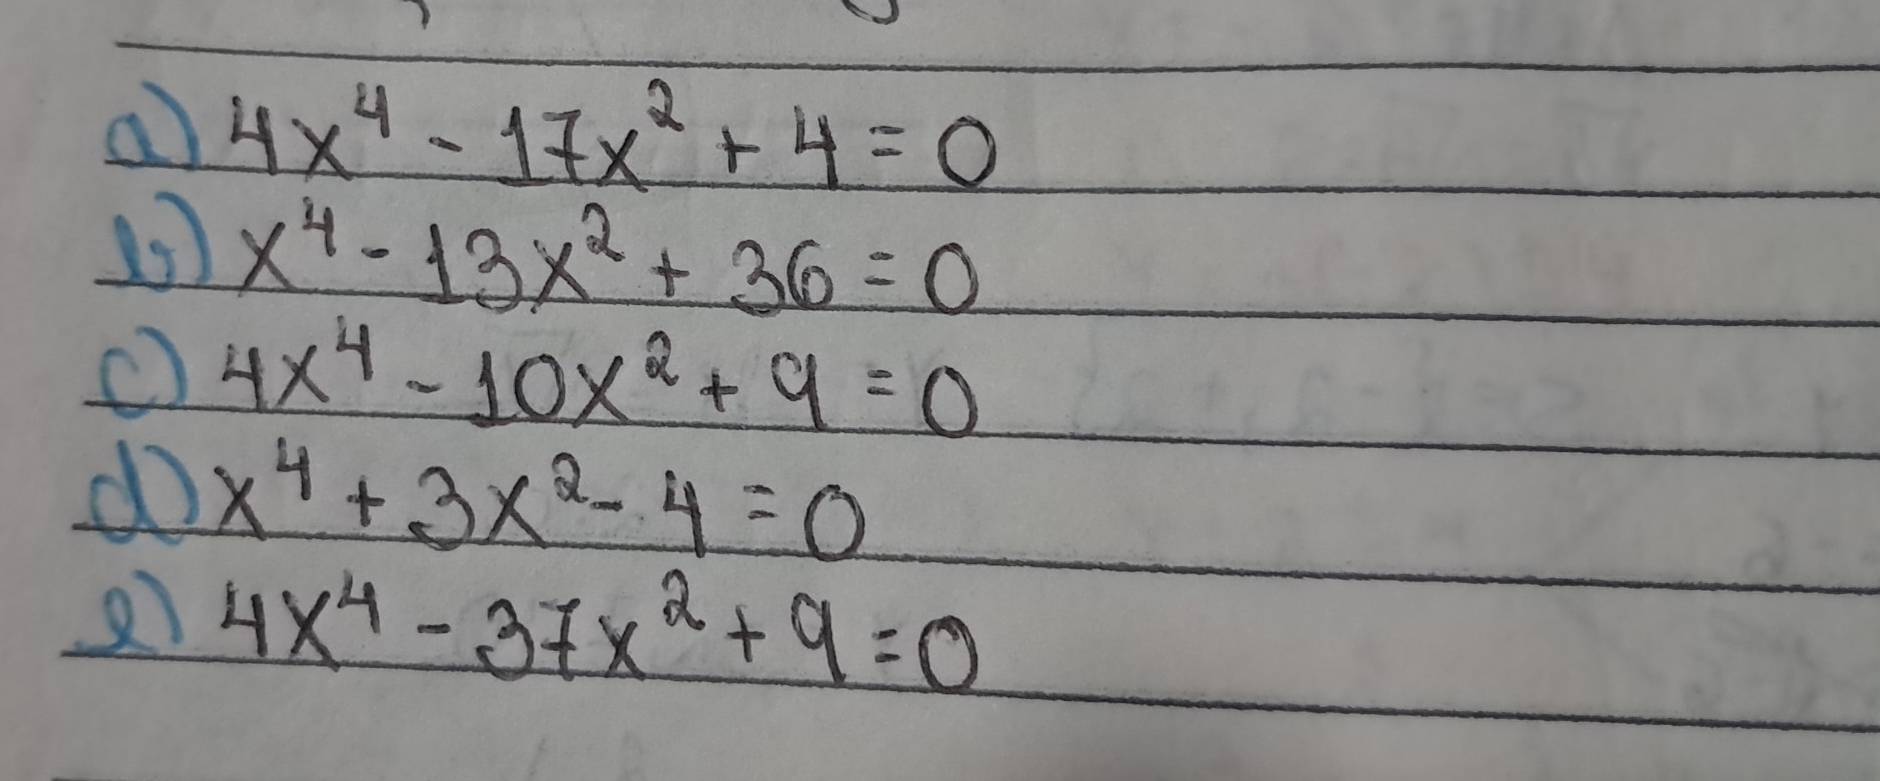 a) 4x⁴ - 17x² + 4 = 0
b) x⁴ - 13x² + 36 = 0
c) 4x⁴ - 10x² + 9 = 0
d) x⁴ + 3x² - 4 = 0
e) 4x⁴ - 37x² + 9 = 0